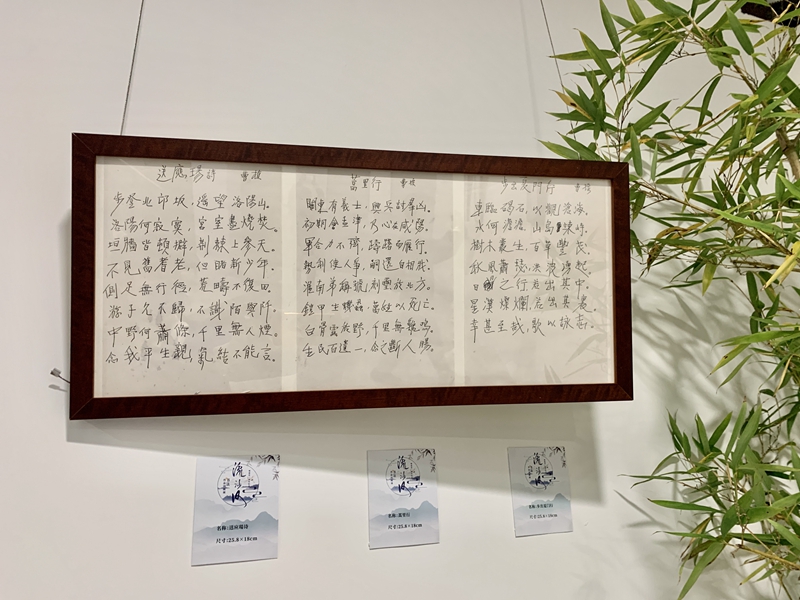 送應瑒詩 曹植
步登北邙坂，遥望洛陽山。
洛陽何寂寞，宮室盡燒焚。
垣牆皆頓擗，荆棘上參天。
不見舊耆老，但睹新少年。
側足無行徑，荒疇不復田。
游子久不歸，不識陌與阡。
中野何蕭條，千里無人煙。
念我平生親，氣結不能言。
蒿里行 曹操
關東有義士，興兵討群凶。
初期會孟津，乃心在咸陽。
軍合力不齊，躊躇而雁行。
勢利使人爭，嗣還自相戕。
淮南弟稱號，刻璽於北方。
鎧甲生蟣蝨，萬姓以死亡。
白骨露於野，千里無雞鳴。
生民百遺一，念之斷人腸。
步出夏門行 曹操
東臨碣石，以觀滄海。
水何澹澹，山島竦峙。
樹木叢生，百草豐茂。
秋風蕭瑟，洪波湧起。
日月之行，若出其中。
星漢燦爛，若出其裏。
幸甚至哉，歌以詠志。
名称:送应瑒诗
尺寸:25.8×18cm
名称:蒿里行
尺寸:25.8×18cm
尺寸:25.8×18cm